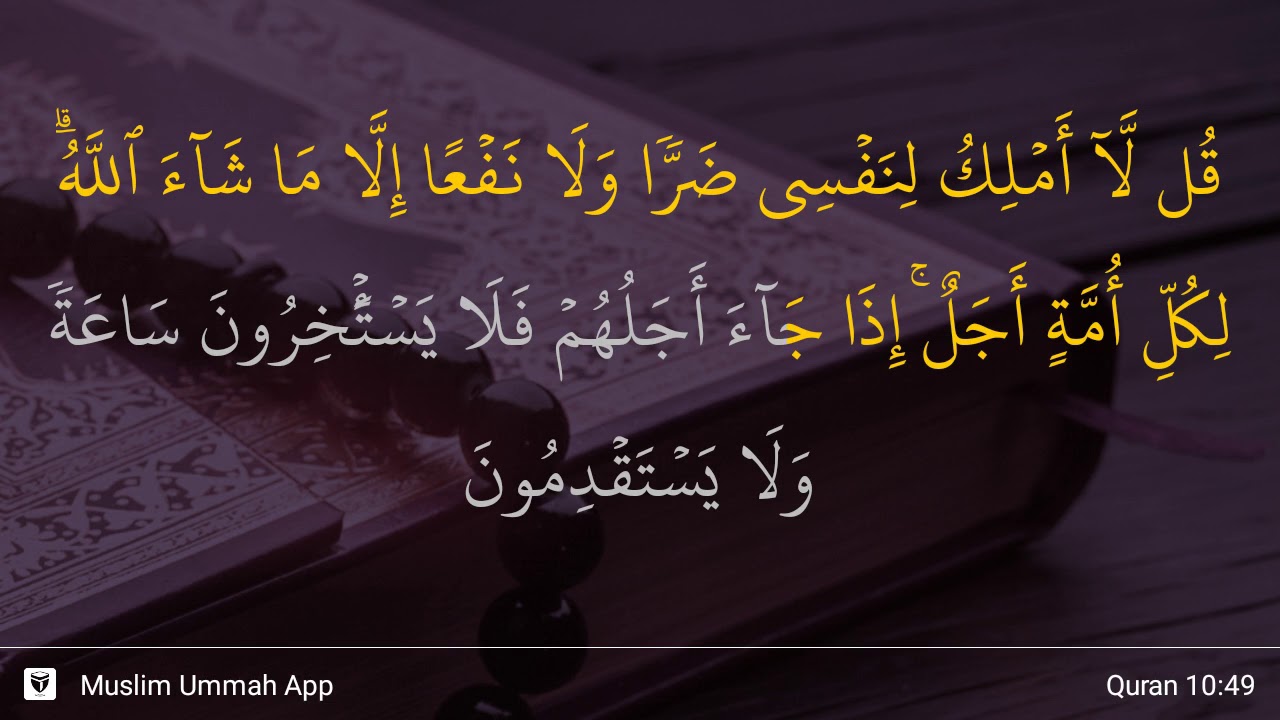 قُل لَّآ أَمْلِكُ لِنَفْسِى ضَرًّا وَلَا نَفْعًا إِلَّا مَا شَآءَ ٱللَّهُ ۗ
لِكُلِّ أُمَّةٍ أَجَلٌ ۚ إِذَا جَآءَ أَجَلُهُمْ فَلَا يَسْتَـْٔخِرُونَ سَاعَةً
وَلَا يَسْتَقْدِمُونَ
Muslim Ummah App
Quran 10:49